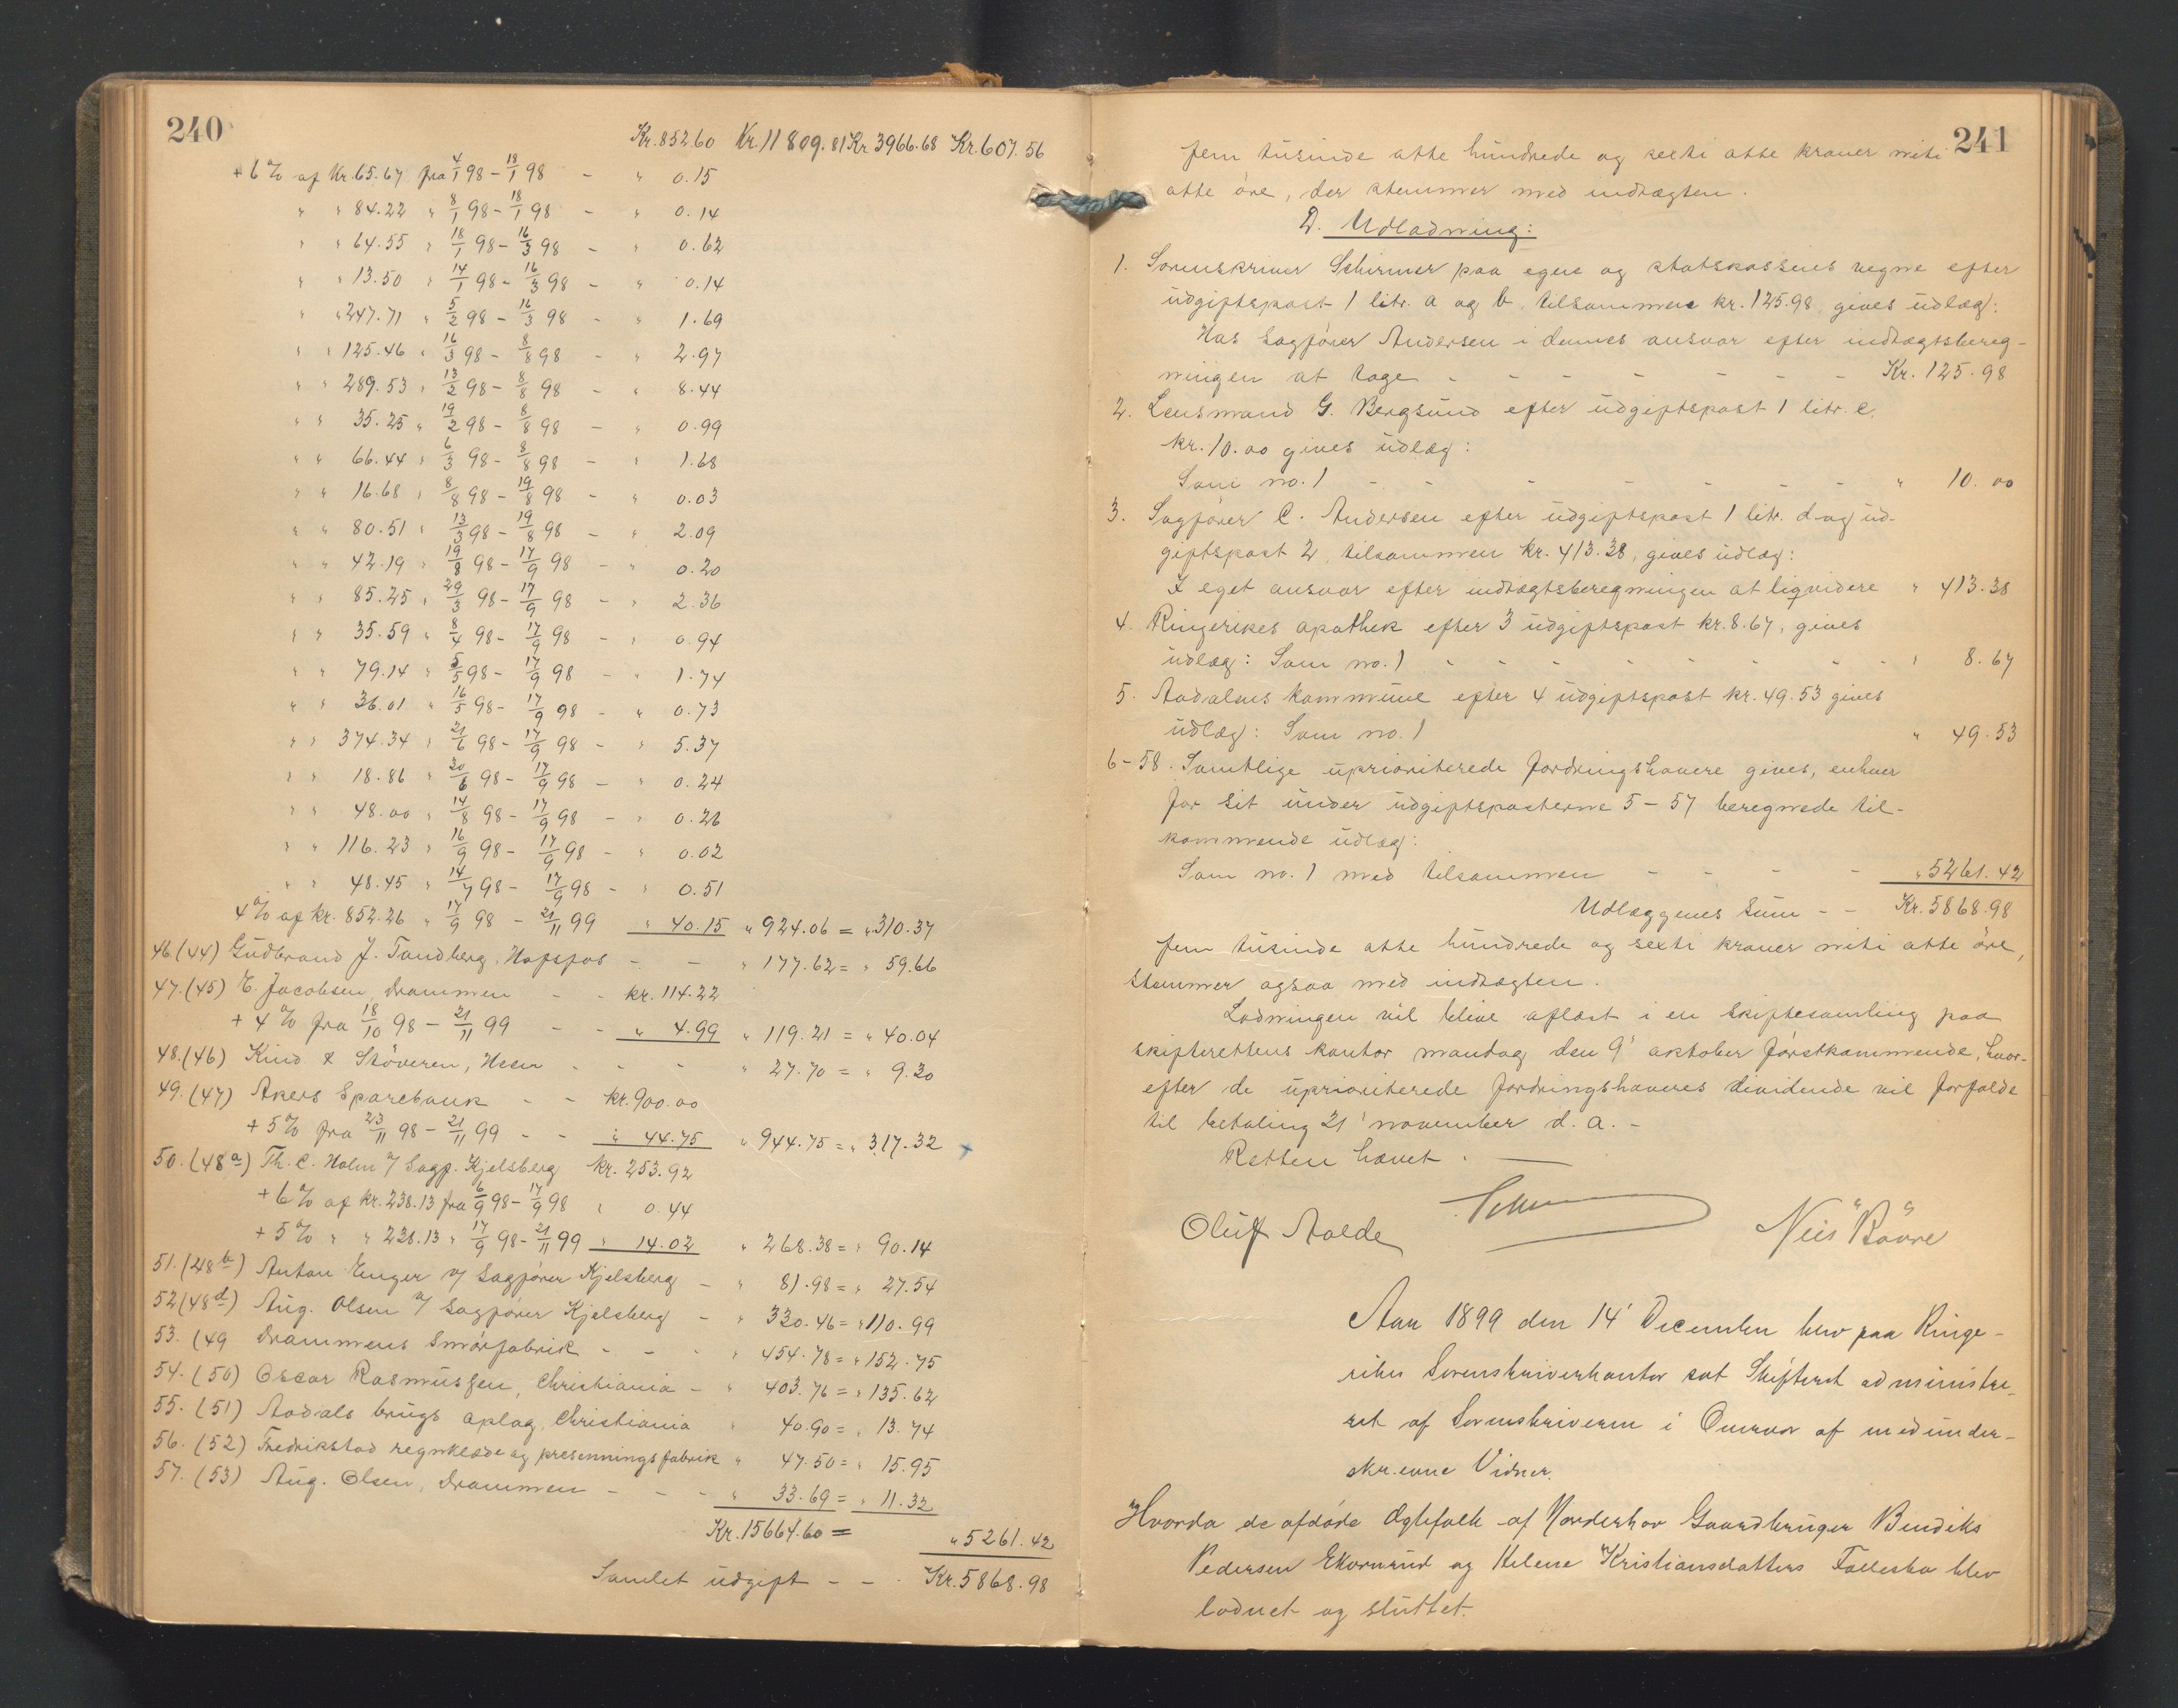 240
Kr. 852.60 Kr. 11809.81 Kr 3966.68 Kr. 607.56
+ 6 % af Kr. 65.67 fra 4/1 98 - 18/1 98 - " 0.15
" " 84.22 " 8/1 98 - 18/1 98 - " 0.14
" " 64.55 " 18/1 98 - 16/3 98 - " 0.62
" " 13.50 " 14/1 98 - 16/3 98 - " 0.14
" " 247.71 " 5/2 98 - 16/3 98 - " 1.69
" " 125.46 " 16/3 98 - 8/8 98 - " 2.97
" " 289.53 " 13/2 98 - 8/8 98 - " 8.44
" " 35.25 " 19/2 98 - 8/8 98 - " 0.99
" " 66.44 " 6/3 98 - 8/8 98 - " 1.68
" " 16.68 " 8/8 98 - 19/8 98 - " 0.03
" " 80.51 " 13/3 98 - 19/8 98 - " 2.09
" " 42.19 " 19/8 98 - 17/9 98 - " 0.20
" " 85.25 " 29/3 98 - 17/9 98 - " 2.36
" " 35.59 " 8/4 98 - 17/9 98 - " 0.94
" " 79.14 " 5/5 98 - 17/9 98 - " 1.74
" " 36.01 " 16/5 98 - 17/9 98 - " 0.73
" " 374.34 " 21/6 98 - 17/9 98 - " 5.37
" " 18.86 " 20/6 98 - 17/9 98 - " 0.24
" " 48.00 " 14/8 98 - 17/9 98 - " 0.26
" " 116.23 " 16/9 98 - 17/9 98 - " 0.02
" " 48.45 " 14/7 98 - 17/9 98 - " 0.51
4 % af kr. 852.26 " 17/9 98 - 21/11 99 " 40.15 " 924.06 = " 310.37
46. (44) Gudbrand J. Tandberg, Hofsfos - - " 177.62 = " 59.66
47. (45) E. Jacobsen, Drammen - - kr. 114.22
+ 4 % fra 18/10 98 - 21/11 99 - - " 4.99 " 119.21 = " 40.04
48. (46) Kind & Stöveren, Heen - - - " 27.70 = " 9.30
49. (47) Akers Sparebank - - kr. 900.00
+ 5 % fra 23/11 98 - 21/11 99 - - " 44.75 " 944.75 = " 317.32
50. (48 a) Th. C. Holm v/ Sagf. Kjelsberg kr. 253.92
+ 6 % af kr. 238.13 fra 6/9 98 - 17/9 98 " 0.44
+ 5 % " " 238.13 " 17/9 98 - 21/11 99 " 14.02 " 268.38 = " 90.14
51. (48 b) Anton Enger v/ Sagfører Kjelsberg - " 81.98 = " 27.54
52 (48 d) Aug. Olsen v/ Sagfører Kjelsberg - " 330.46 = " 110.99
53. (49 Drammens Smörfabrik - - - " 454.78 = " 152.75
54. (50) Oscar Rasmussen, Christiania - " 403.76 = " 135.62
55. (51) Aadals brugs oplag, Christiania " 40.90 = " 13.74
56. (52) Fredrikstad regnklæde og presenningsfabrik " 47.50 = " 15.95
57. (53) Aug. Olsen, Drammen - - - " 33.69 = " 11.32
Kr. 15664.60 = " 5261.42
Samlet udgift - - Kr. 5868.98
241
fem tusinde otte hundrede og sexti otte kroner niti
otte øre, der stemmer med indtægten.
D. Udlodning:
1. Sorenskriver Schirmer paa egne og statskassens vegne efter
udgiftspost 1 litr. a og b tilsammen kr. 125.98 gives udlæg:
Hos Sagfører Andersen i dennes ansvar efter indtægtsbereg-
ningen at tage - - - - - - - Kr. 125.98
2. Lensmand G. Bergsund efter udgiftspost 1 litr. c.
kr. 10.00 gives udlæg:
Som no. 1 - - - - - - - " 10.00
3. Sagfører C. Andersen efter udgiftspost 1 litr. d og ud-
giftspost 2, tilsammen kr. 413.38, gives udlæg:
I eget ansvar efter indtægtsberegningen at liqvidere " 413.38
4. Ringerikes apothek efter 3 udgiftspost kr. 8.67, gives
udlæg: Som no. 1 - - - - - - - " 8.67
5. Aadalens kommune efter 4 udgiftspost kr. 49.53 gives
udlæg: Som no. 1 " 49.53
6-58. Samtlige uprioriterede fordringshavere gives, enhver
for sit under udgiftsposterne 5-57 beregnede til-
kommende udlæg:
Som no. 1 med tilsammen - - - - " 5261.42
Udlæggenes Sum - - Kr. 5868.98
fem tusinde otte hundrede og sexti kroner niti otte øre,
stemmer ogsaa med indtægten.
Lodningen vil blive oplæst i en skiftesamling paa
skifterettens kontor mandag den 9' oktober førstkommende, hvor-
efter de uprioriterede fordringshaveres dividende vil forfalde
til betaling 21' november d. a. -
Retten hævet. -
Oluf Aalde
Aar 1899 den 14' December blev paa Ringe-
rikes Sorenskriverkontor sat Skifteret administre-
ret af Sorenskriveren i Overvær af medunder-
skrevne Vidner.
Hvorda de afdøde Ægtefolk af Norderhov Gaardbruger Bendiks
Pedersen Ekornrud og Helene Kristiansdatters Fællesbo blev
lodnet og sluttet.